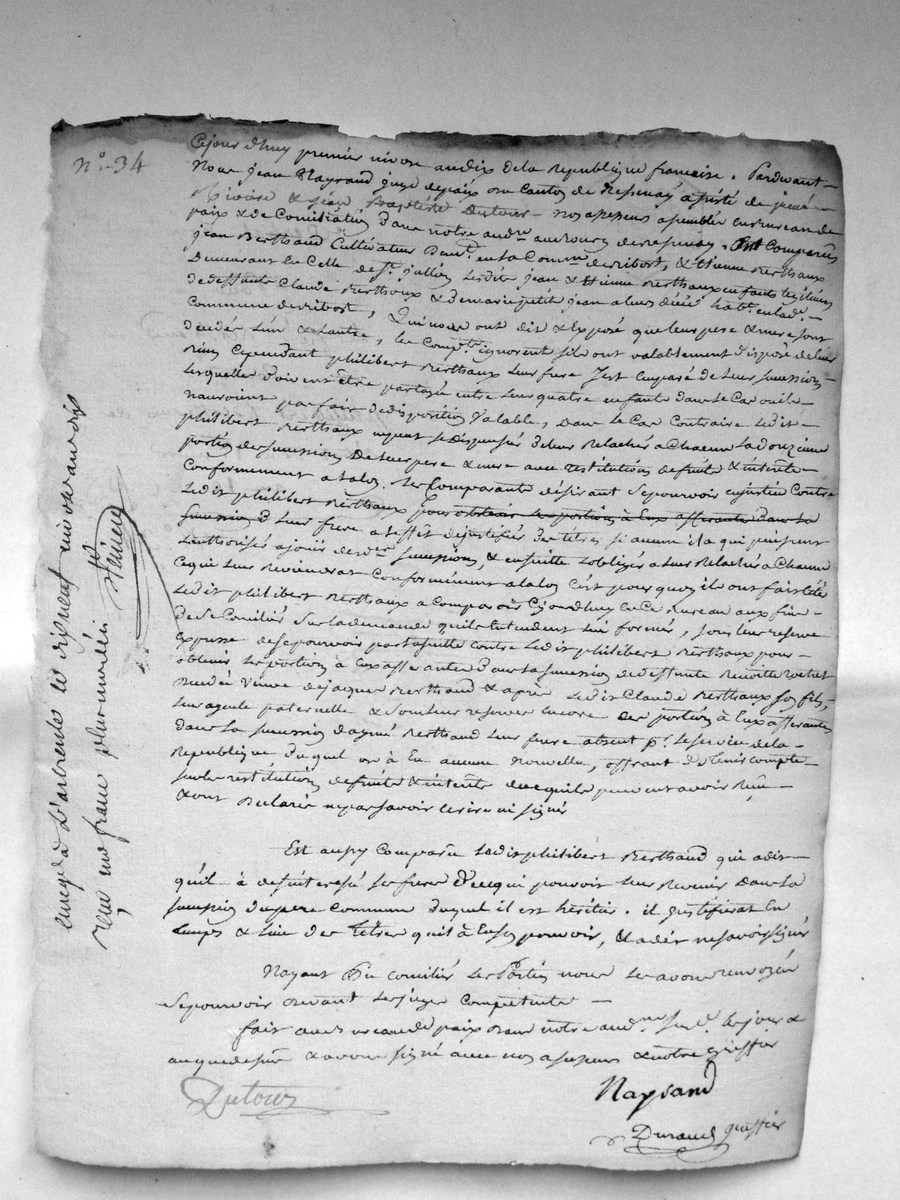 n°. 34
Cejourdhuy premier nivose an dix de la Republique francaise. Pardevant
Nous jean Naysand juge depaix du Canton de assisté de
Rivoire & jean Baptiste Dutour nos assesseurs assemblés en bureau de
paix & de Conciliation dans notre audre. au bourg de Ont Comparus
jean Berthaud Cultivateur Demt. en la Commne. de ribost, & Etienne Berthaux
Demeurant la Celle de St. jullien lesdits jean & Etienne Berthaux enfants legitimes
de deffunts Claude Berthoux & de marie petit jean a leur décé habts. en lade.
Commune de ribost, Qui nous ont dit & Exposé que leurs pere & mere sont
decédés L'un & L'autre, les Compts. ignorent s'ils ont valablement disposé de leurs
biens Cependant philibert Berthaux leur frere s'est Emparé de leurs successions
lesquelles doivent être partagés entre leurs quatre enfants dans le Cas ou ils
nauroint pas fait de disposition Valable, Dans le Cas Contraire ledit
philibert Berthaux ne peut se dispenser de leur Relacher a Chacun la douzieme
portion des successions de leurs pere & mere avec restitution de fruits & interets
Conformement a la loy. Les Comparants désirant se pourvoir en justice Contre
ledit philibert Berthaux pour obtenir les portions à Eux afferantes dans la
succession de leur frere a l'effet de justifier des titres si aucun il a qui puissent
L'authoriser a jouir desdtes. successions, & ensuitte L'obliger a leur Relacher a Chacun
ce qui leur reviendrat Conformément a la loy C'est pourquoy ils ont fait Cité
ledit philibert Berthaux a Comparoir Cejourdhuy En Ce Bureau aux fins
de se Concilier sur la demande qu'ils Entendent lui former, sous leur reserve
Expresse de se pourvoir par la suitte contre ledit philibert Berthaux pour
obtenir les portions à Eux afferantes dans la succession de deffunte Benoitte
Decédée Veuve de jacques Berthaud & après ledit Claude Berthaux son fils,
leur ayeule paternelle & sous leur reserve encore des portions à Eux afferantes
dans la succession d'aymé Berthaud leur frere absent pr. le service de la
Republique duquel on à Eu aucune nouvelle, offrant de tenir compte
sur les restitutions de fruits & interets de ce qu'ils peuvent avoir Reçu
& ont Declarés ne pas savoir écrire ni signé
Est aussy Comparû ledit philibert Berthaud qui a dit
qu'il à desinteressé ses freres de ce qui pouvoit leur Revenir Dans la
succession du pere Commun duquel il est héritier. il justifierat En
temps & lieu des Titres qu'il à En son pouvoir, & a dit ne savoir signer
N'ayant Pu concilier les Parties nous les avons renvoyées
se pourvoir devant les juges Competents
fait au bureau de paix dans notre audre. susde. les jour &
an que dessus & avons signé avec nos assesseurs & notre greffier
Dutour
Naysand
Durand greffier
enregé à L'arbresle le dix neuf nivose an dix
reçu un franc plus